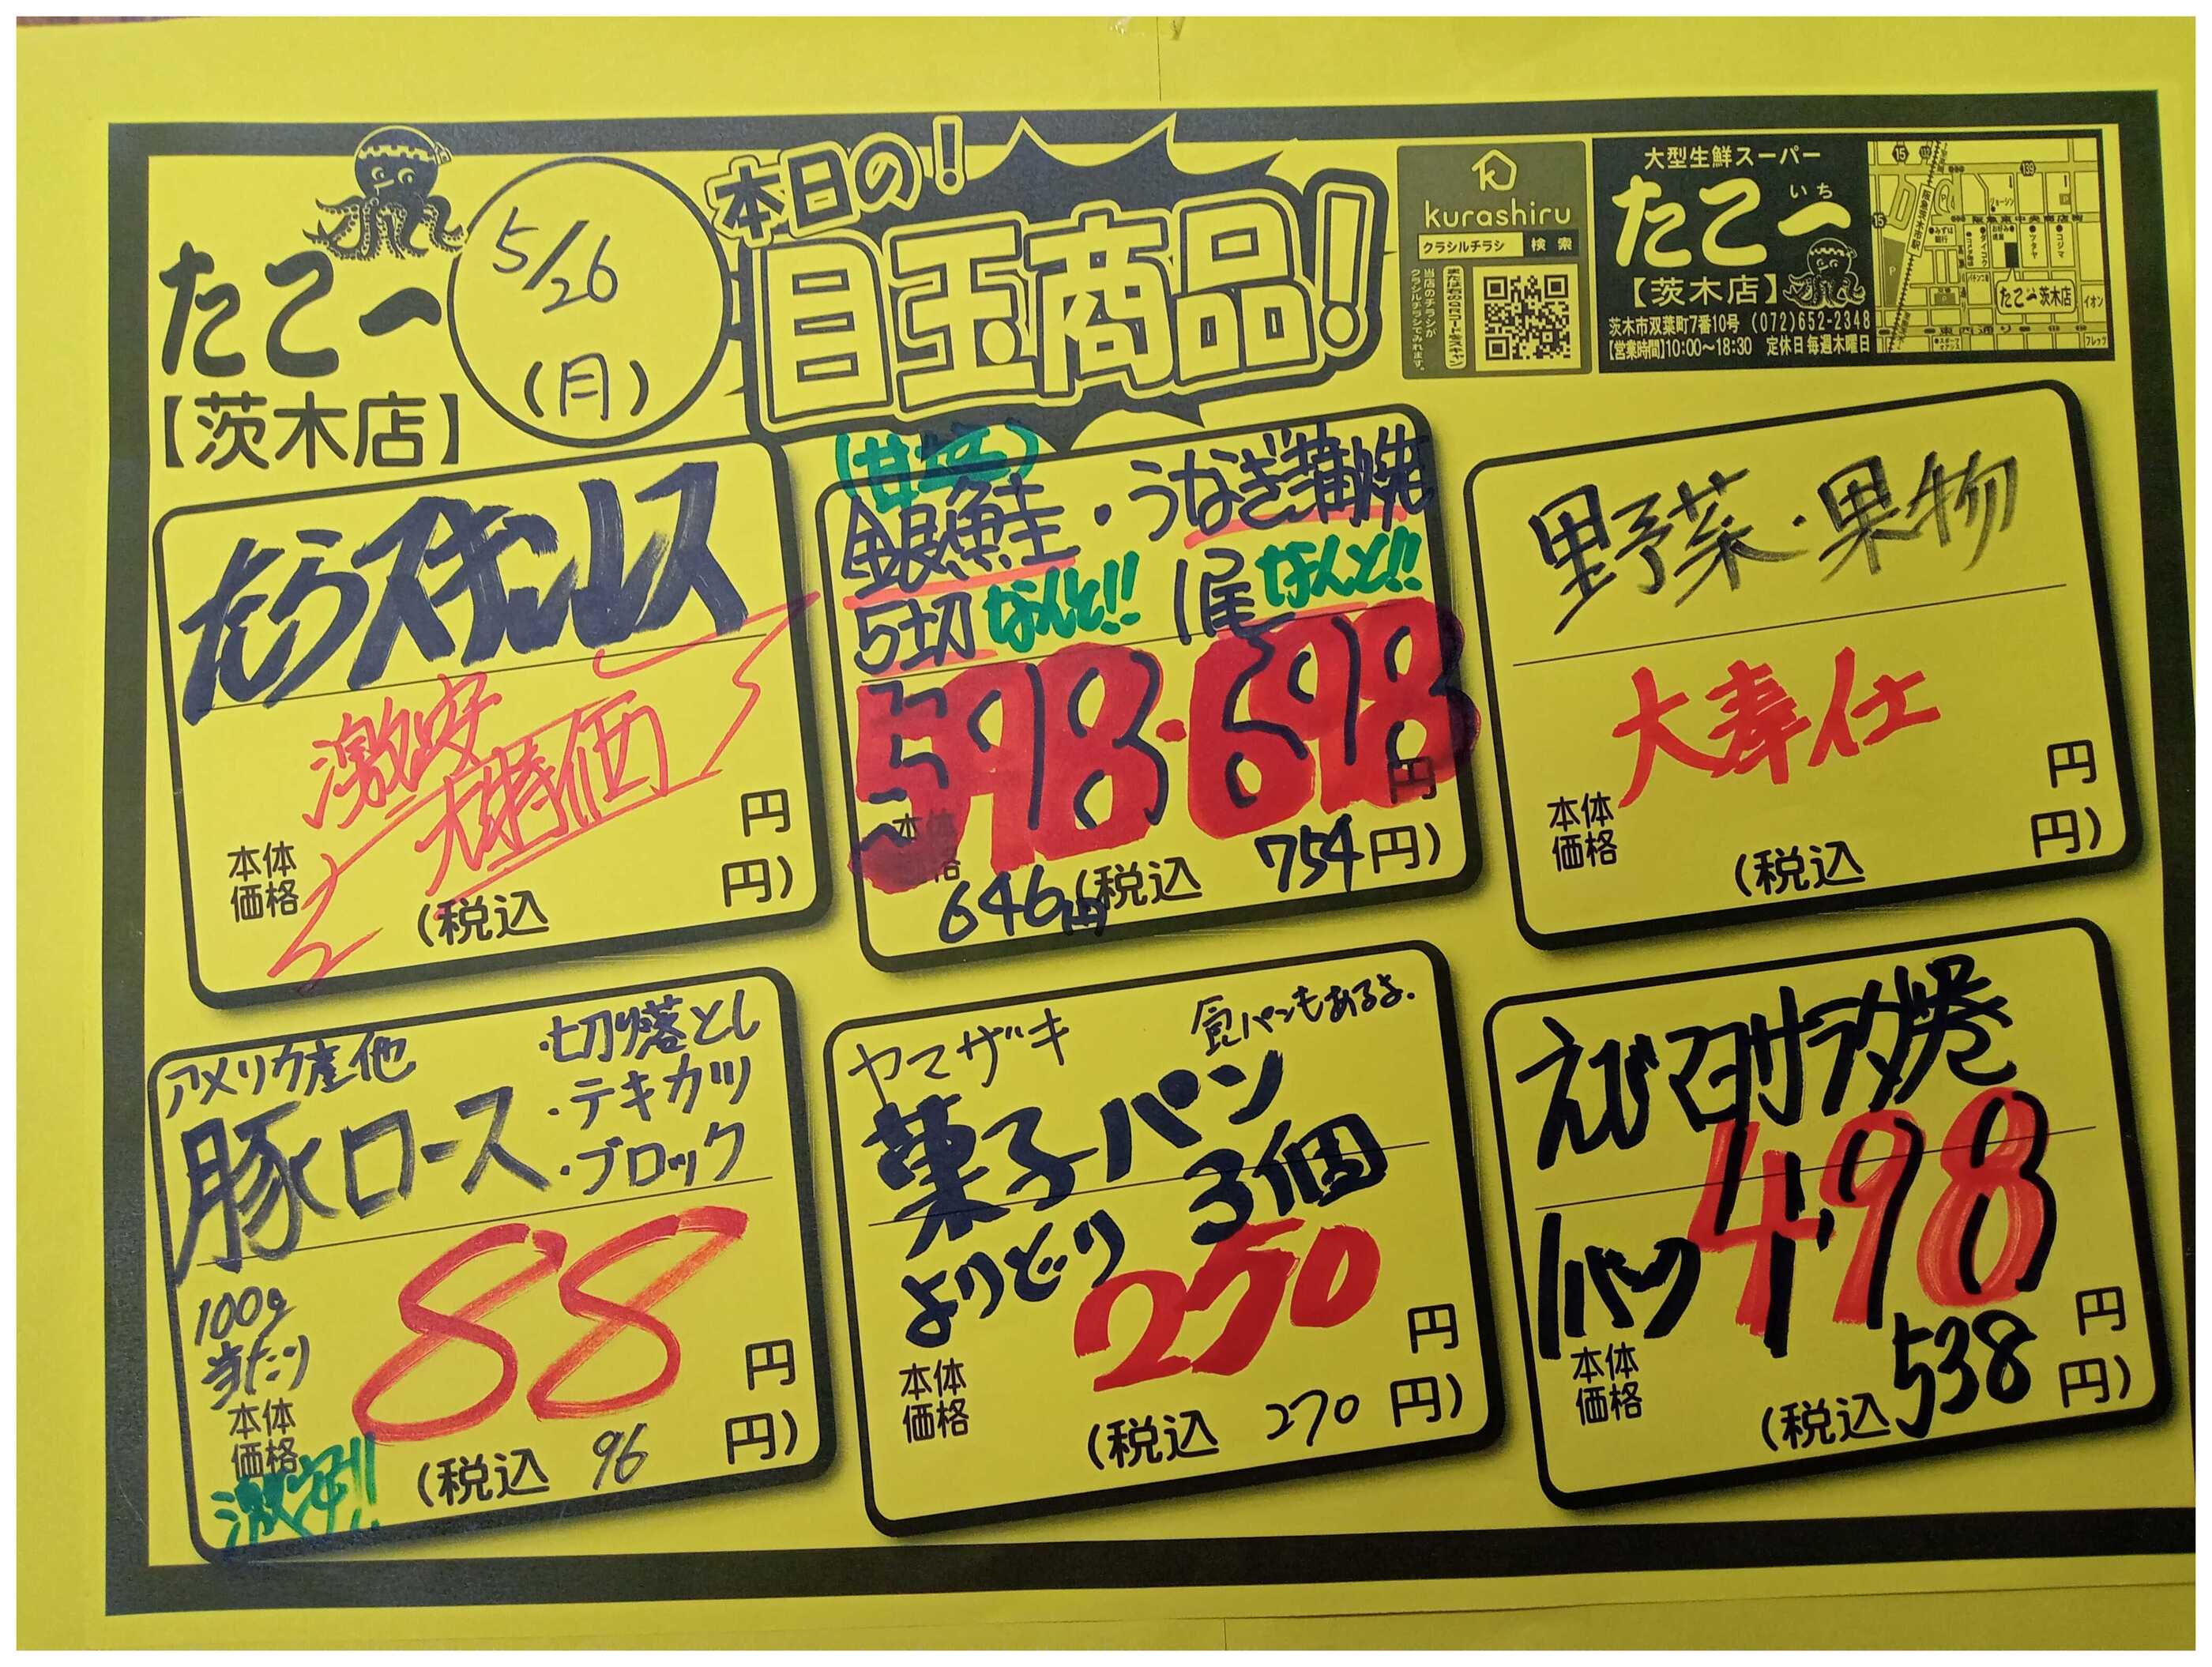 たこ一
【茨木店】
5/26
(月)
本日の!
目玉商品!
kurashiru
クラシルチラシ 検索
当店のチラシが
クラシルチラシでみれます。
または右のQRコードをスキャン
大型生鮮スーパー
たこ一
いち
【茨木店】
茨木市双葉町7番10号 (072)652-2348
【営業時間】10:00〜18:30 定休日 毎週木曜日
たこ一茨木店
イオン
たらスキンレス
激安
大特価
本体
価格
円
(税込 円)
(甘塩)
銀鮭・うなぎ蒲焼
5切 なんと!! 1尾 なんと!!
598・698
本体
価格
円
646円 (税込 754円)
野菜・果物
大奉仕
本体
価格
円
(税込 円)
アメリカ産他
豚ロース
・切り落とし
・テキカツ
・ブロック
100g
当たり
88
本体
価格
円
激安!!
(税込 96 円)
ヤマザキ
食パンもあるよ.
菓子パン
よりどり 3個
250
本体
価格
円
(税込 270 円)
えびマヨサラダ巻
1パック 498
本体
価格
円
(税込 538 円)